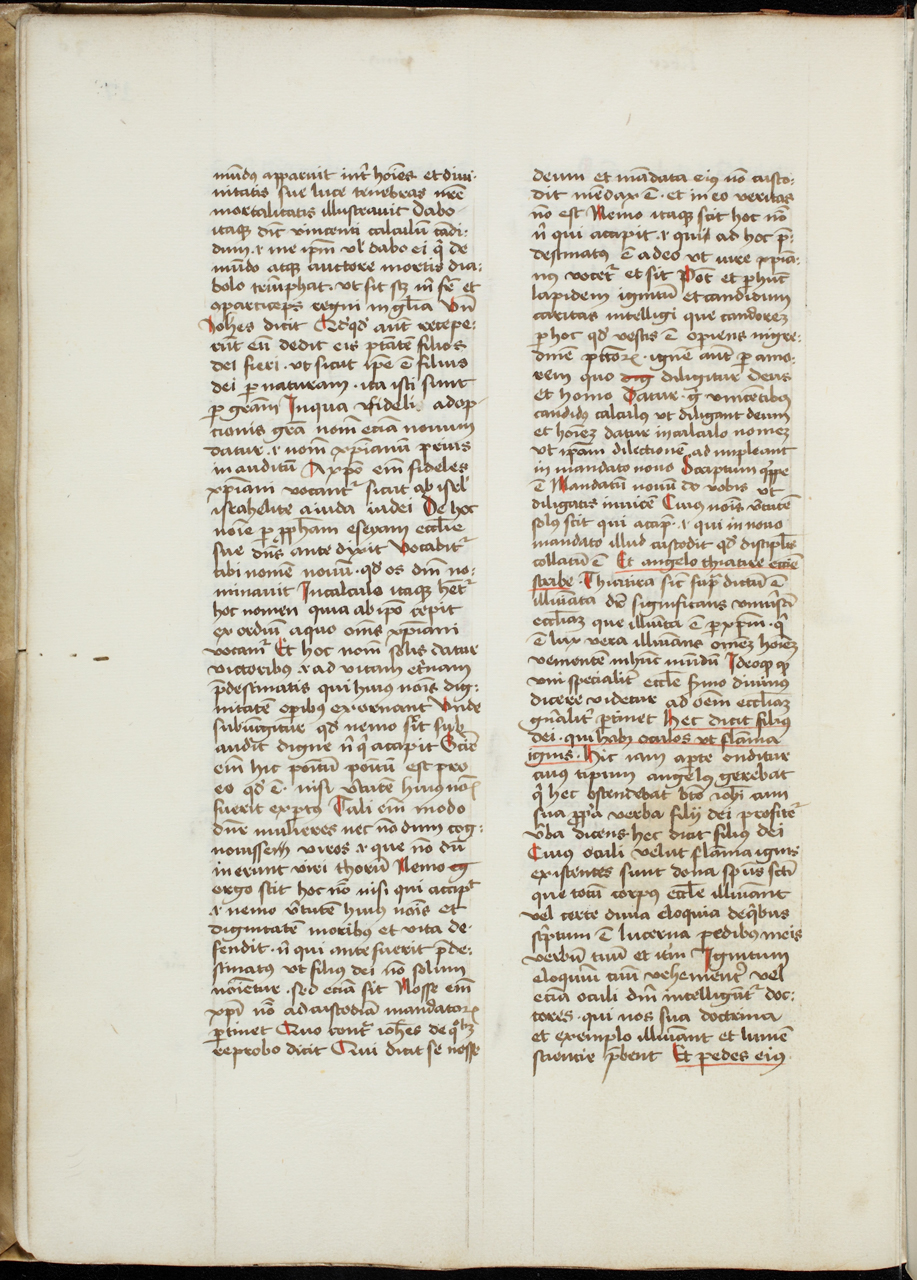 mūdus apparuit int̄ hoīes et diui-
nitatis sue luce tenebras nr̄e
mortalitatis illustrauit Dabo
itaqꝫ dn̄c vincenti calculū cādi-
dum .i. me ip̄m vl' dabo ei qͥ de
mūdo atqꝫ auctore mortis dia-
bolo triūphat . vt sit scꝫ in sc̄e et
oꝑticeps regni in gl̄ia Vn̄
Iohēs dicit Qd'qd' aut̄ recepe-
rūt eū dedit eis ptātē filios
dei fieri . vt sicut ip̄e ē filius
dei ꝑ naturam . ita isti sunt
ꝑ grām In qua fideli adop-
tionis grā nom̄ eciā nouum
datur .i. nom̄ xp̄ianū prius
inauditū A xp̄o em̄ fideles
xp̄iani vocantᷣ sicut ab isrl'
israhelite a iuda iudei De hoc
noīe ꝑ ꝓpham esayam eccl̄ie
sue dn̄s ante dixit Vocabitᷣ
tibi nomē nouū . qd' os dn̄i no-
minauit In calculo itaqꝫ hētᷣ
hoc nomen quia ab ip̄o cepit
exordiū a quo om̄s xp̄iani
vocamᷣ Et hoc nom̄ solis datur
victoribus .i. ad vitam et̄nam
p̄destinatis qui huius noīs dig-
nitatē oꝑibus exornant Vnde
subiūgitur qd' nemo scit sub
audit digne n̄ qͥ accipit Scire
em̄ hic positū est pro
eo qd' ē . nisi v̄tutē huius noīs
fuerit expertus Tali em̄ modo
dn̄r mulieres nec nō dum cog-
nouissem viros .i. que nō dū
inierunt viri thorū Nemo
ergo scit hoc nō nisi qui accipit
.i. nemo v̄tutē huius noīs et
dignitatē moribus et vita de-
fendit . n̄ qui ante fuerit p̄de-
stinatus vt filius dei nō solum
noīetur . sed eciā sit Nosse em̄
xp̄i nō ad custodiā mandatoꝝ
ꝑtinet Quo contᷓ ioh̄es de qͦlibꝫ
reprobo dicit Qui dicit se nosse
deum et mādata eius nō custo-
dit mēdax ē . et in eo veritas
nō est Nemo itaqꝫ scit hoc nō
n̄ qui accipit .i. quis ad hoc p̄-
destinatus ē adeo vt iure xp̄ia-
nus vocetᷣ et sit Pōt et ꝑ hūc
lapidem ignitū et candidum
caritas intelligi que candorem
ꝑ hoc qd' vestis ē oꝑiens nigre-
dinē pctōrꝝ . ignē aut̄ ꝑ amo-
rem quo diligitur deus
et homo Datur . g̊ vincētibus
candidus calculus vt diligant deum
et hoīem datur in calculo nomē
vt ip̄am dilectionē adimpleant
in mandato nouo Scriptum qͥppe
ē Mandatū nouū do vobis vt
diligatis inuicē Cuius noīs v̄tutē
solus scit qui accipit .i. qui in nouo
mandato illud custodit qd' discipl̄is
collatū ē Et angelo thiatire eccl̄ie
scribe Thiatira sic supᷓ dictū ē
illuīata dr̄ significans vniu̓sā
eccl̄iam que illuīta ē ꝑ xp̄m . qͥ
ē lux vera illuīans om̄em hoīem
veniente in hūc mūdū Ideoqꝫ qͣ
vni specialit̓ eccl̄ie sermo diuinus
dicere videtur ad oēm eccl̄iam
gn̄alit̓ ꝑtinet Hec dicit filius
dei . qui habꝫ oculos vt flāma
ignis . Hic iam aꝑte ondītur
cuius tipum angelus gerebat
qͥ hec ostendebat bt̄o ioh̄i cum
sua ꝓpͥa verba filij dei profitetᷣ
v̄ba dicens . hec dicit filius dei
Cuius oculi velut flāma ignis
existentes sunt dona sp̄us scti
que totū corpus eccl̄ie illuīant
vel certe diuina eloquia de qͥbus
sc̄ptum ē lucerna pedibus meis
verbū tuū et itm̄ Ignitum
eloquiū tuū vehementer vel
eciā oculi dn̄i intelligūtᷣ doc-
tores . qui nos sua doctrina
et exemplo illuīant et lumē
sciencie p̄bent Et pedes eius